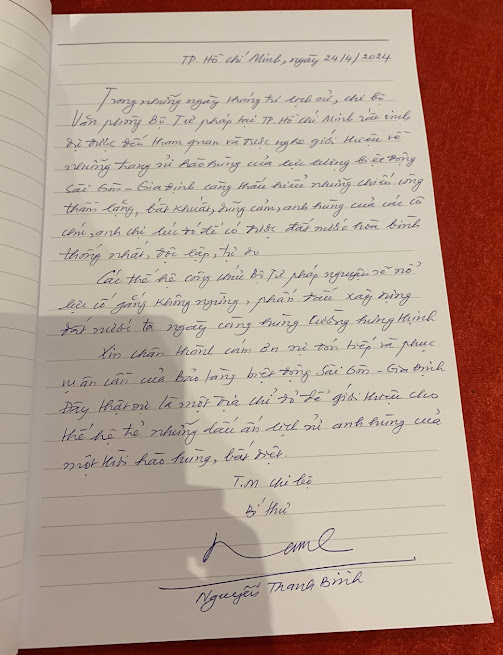 TP. Hồ Chí Minh, ngày 24/4/2024
Trong những ngày tháng tư lịch sử, chi bộ
Văn phòng Bộ Tư pháp tại TP. Hồ Chí Minh rất vinh
dự được đến tham quan và được nghe giới thiệu về
những trang sử hào hùng của lực lượng biệt động
Sài Gòn - Gia Định càng thấu hiểu những chiến công
thầm lặng, bất khuất, dũng cảm, anh hùng của các cô
chú, anh chị lúc đó để có được đất nước hòa bình
thống nhất, độc lập, tự do
Các thế hệ công chức Bộ Tư pháp nguyện sẽ nỗ
lực cố gắng không ngừng, phấn đấu xây dựng
đất nước ta ngày càng hùng cường hưng thịnh
Xin chân thành cám ơn sự đón tiếp và phục
vụ ân cần của Bảo tàng biệt động Sài Gòn - Gia Định
Đây thật sự là một địa chỉ đỏ để giới thiệu cho
thế hệ trẻ những dấu ấn lịch sử anh hùng của
một thời hào hùng, bất diệt.
T.M chi bộ
Bí thư
Nguyễn Thanh Bình